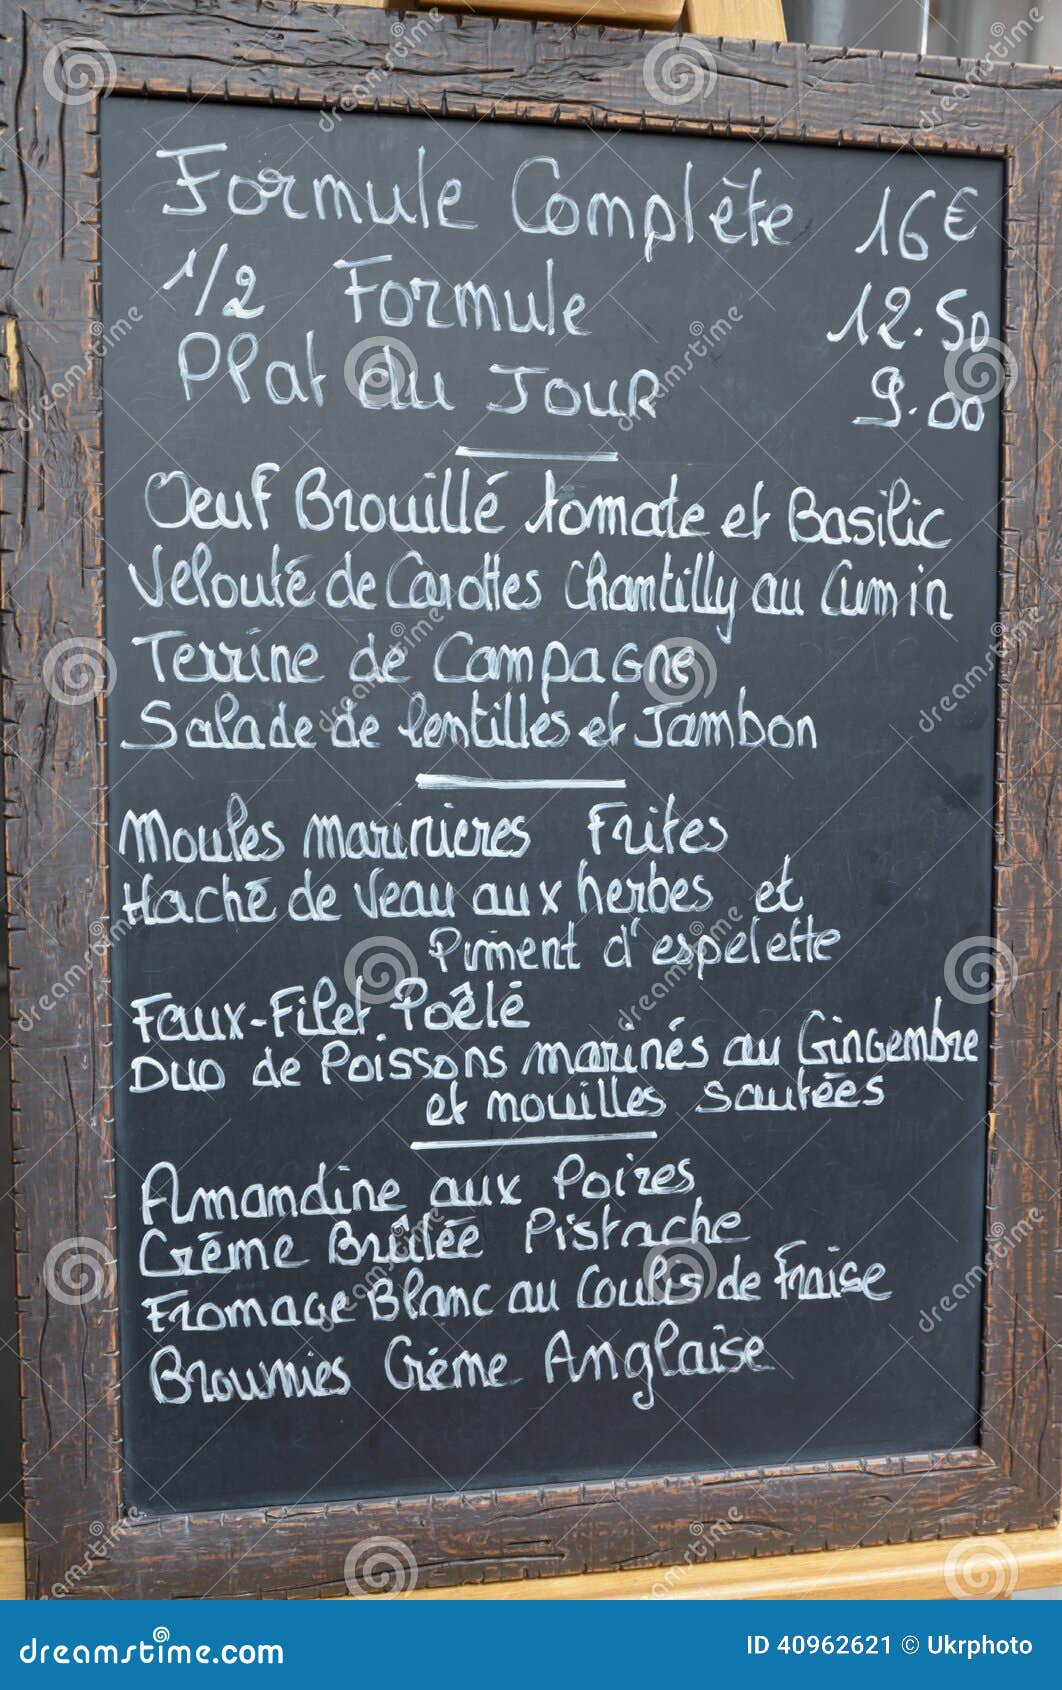 Formule Complète 16€
1/2 Formule 12.50
Plat du Jour 9.00
Oeuf Brouillé tomate et Basilic
Velouté de Carottes Chantilly au Cumin
Terrine de Campagne
Salade de lentilles et Jambon
Moules marinieres Frites
Haché de Veau aux herbes et
Piment d'espelette
Faux-Filet Poêlé
Duo de Poissons marinés au Gingembre
et nouilles sautées
Amandine aux Poires
Crème Brûlée Pistache
Fromage Blanc au Coulis de Fraise
Brownies Crème Anglaise
dreamstime.com
ID 40962621 © Ukrphoto